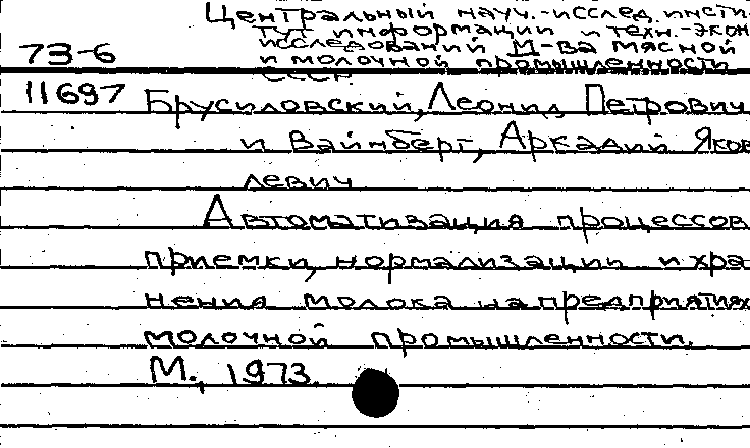 Центральный науч.-исслед. инсти-
тут информации и техн.-экон.
исследований М-ва мясной
и молочной промышленности
СССР.
73-6
11697
Брусиловский, Леонид Петрович
и Вайнберг, Аркадий Яков
левич
Автоматизация процессов
приемки, нормализации и хра
нения молока на предприятиях
молочной промышленности.
М., 1973.